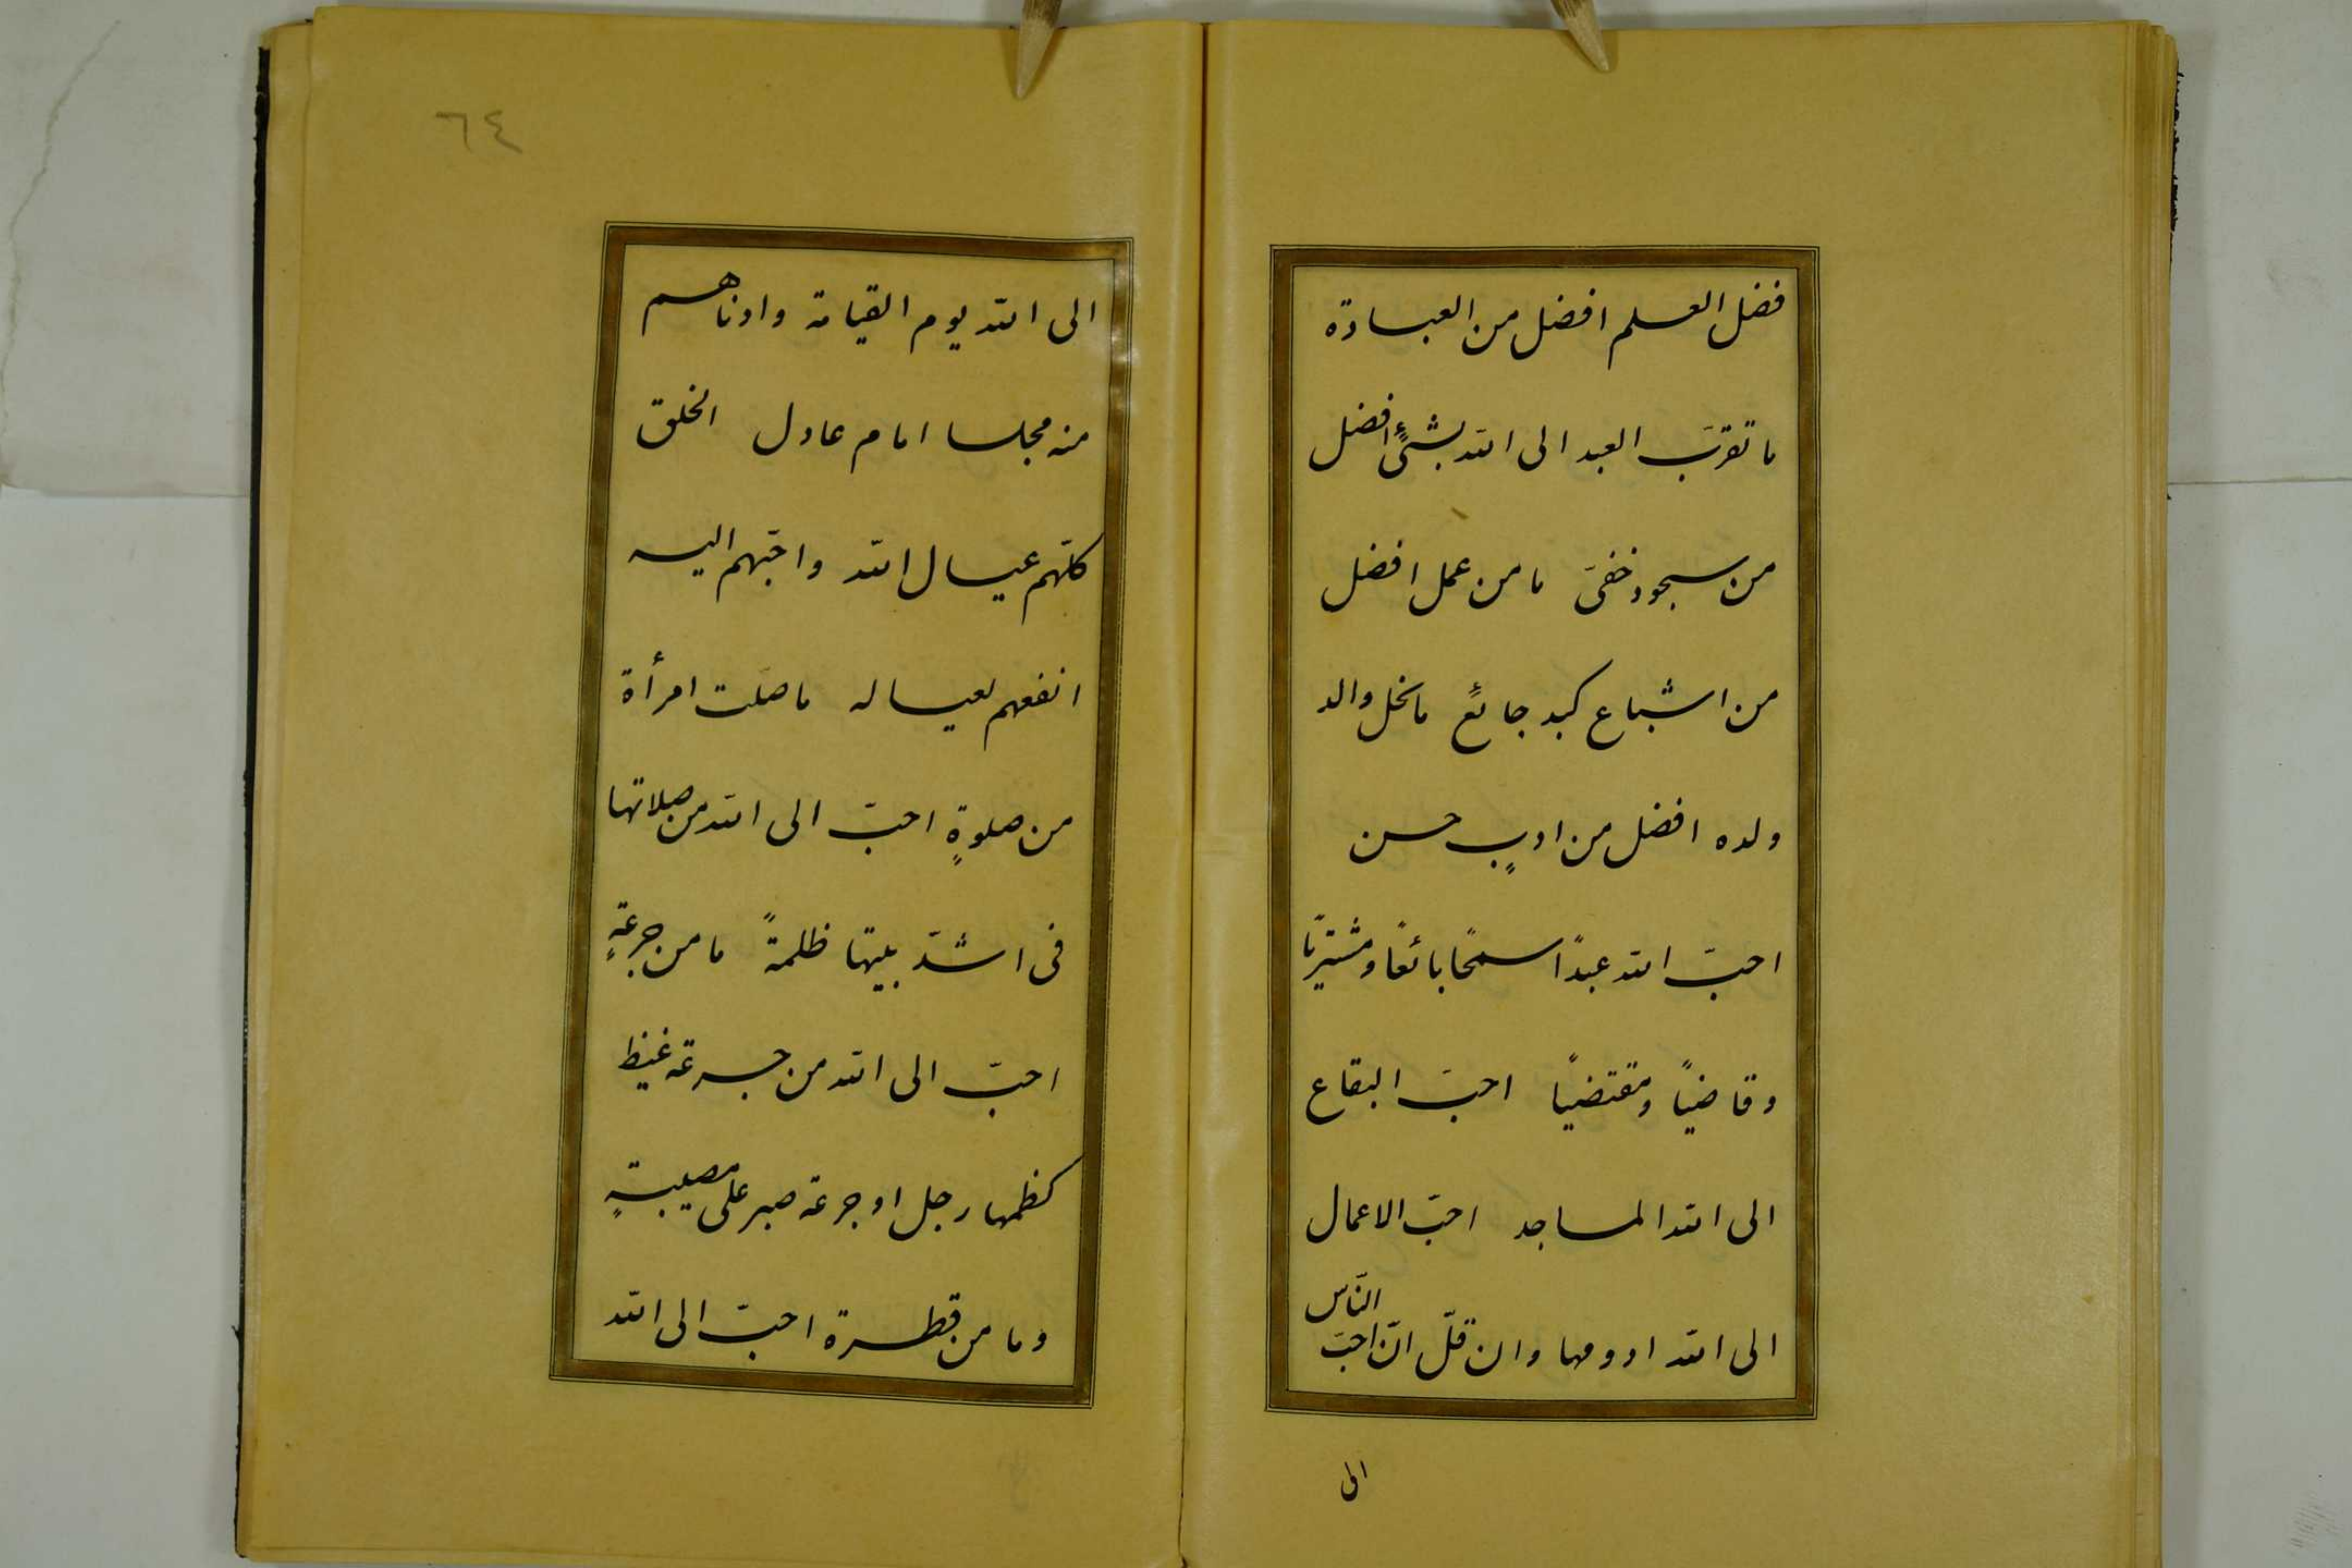 فضل العلم افضل من العبادة
ما تقرّب العبد الى الله بشئٍ افضل
من سجود خفىّ ما من عمل افضل
من اشباع كبد جائعٍ ما نحل والد
ولده افضل من ادبٍ حسن
احبّ الله عبداً سمحًا بائعًا ومشتريًا
وقاضياً ومقتضياً احبّ البقاع
الى الله المساجد احبّ الاعمال
الى الله ادومها وان قلّ انّ احبّ الناس
الى
٦٤
الى الله يوم القيامة وادناهم
منه مجلسا امام عادل الخلق
كلّهم عيال الله واحبّهم اليه
انفعهم لعياله ما صلّت امرأة
من صلوةٍ احبّ الى الله من صلاتها
فى اشدّ بيتها ظلمةً ما من جرعةٍ
احبّ الى الله من جرعة غيظ
كظمها رجل او جرعة صبر على مصيبةٍ
وما من قطرة احبّ الى الله